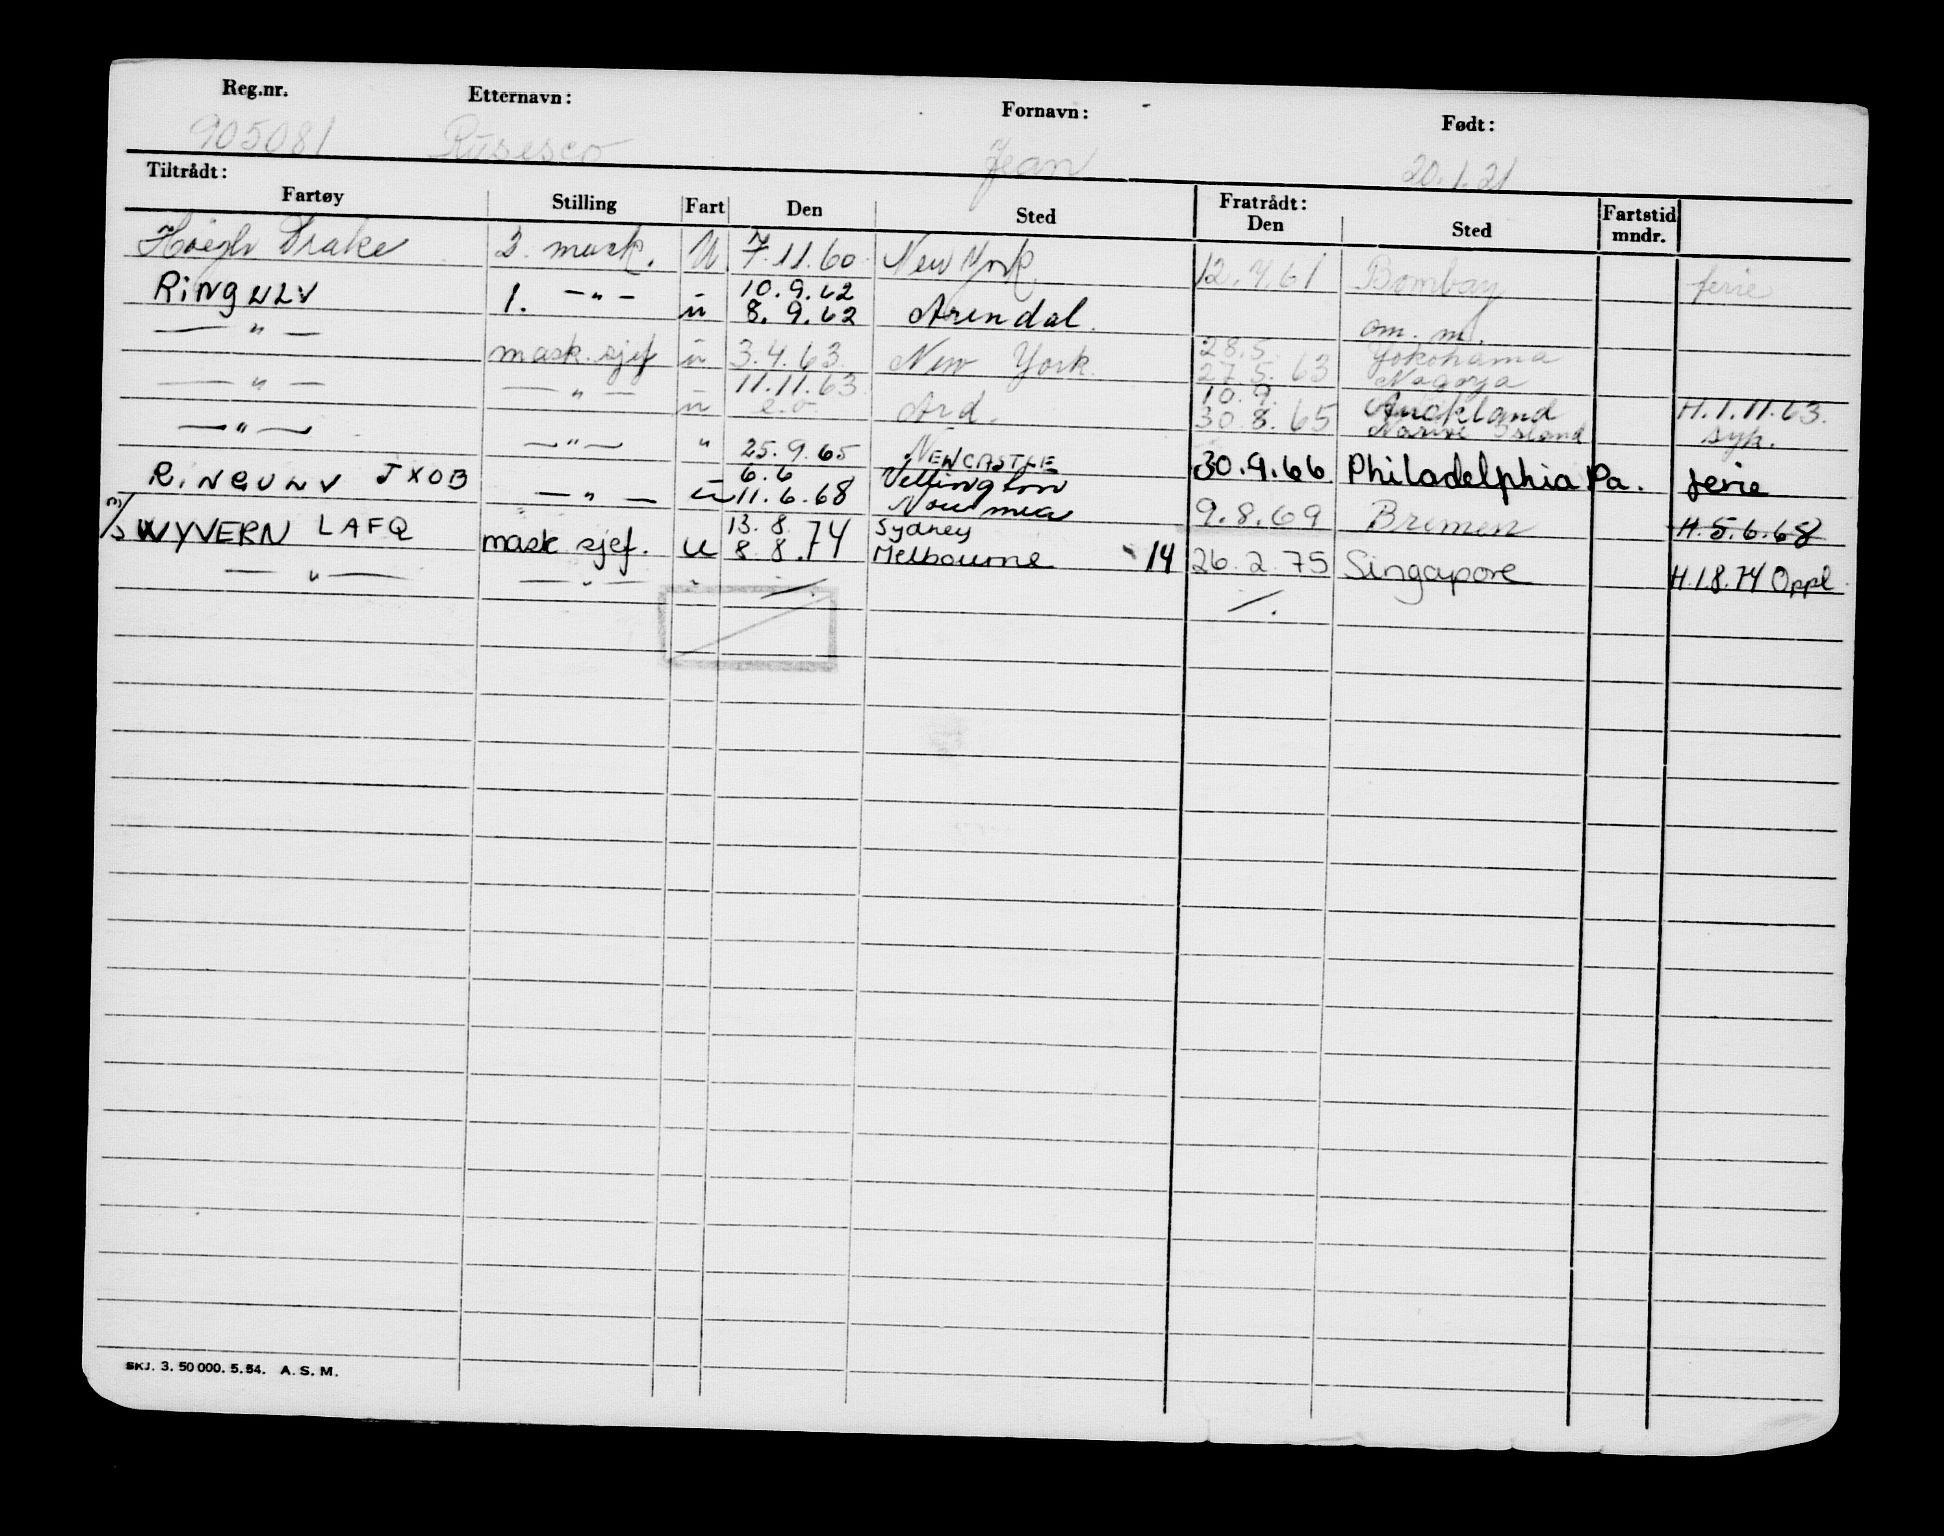 Reg.nr. Etternavn: Fornavn: Født:
905081 Rusesco Jean 20.1.21
Tiltrådt: Fratrådt:
Fartøy Stilling Fart Den Sted Den Sted Fartstid mndr.
Höegh Drake 2. mask. U 7.11.60 New York 12.4.61 Bombay ferie
10.9.62
RINGULV 1. —"— u 8.9.62 Arendal om. m.
28.5. Yokohama
—"— mask. sjef u 3.4.63 New York 27.5.63 Nagoya
11.11.63 10.9. Auckland H.1.11.63.
—"— —"— u e.o. Ard. 30.8.65 syk.
—"— —"— " 25.9.65 NEWCASTLE 30.9.66 Philadelphia Pa. ferie
6.6 Vellington
RINGULV JXOB —"— u 11.6.68 Noumea 9.8.69 Bremen H.5.6.68
13.8. Sydney
M/S WYVERN LAFQ mask sjef. U 8.8.74 Melbourne 14 26.2.75 Singapore H.1.8.74 Oppl.
—"— —"— " —/. —/.
SKJ. 3. 50 000. 5. 54. A. S. M.